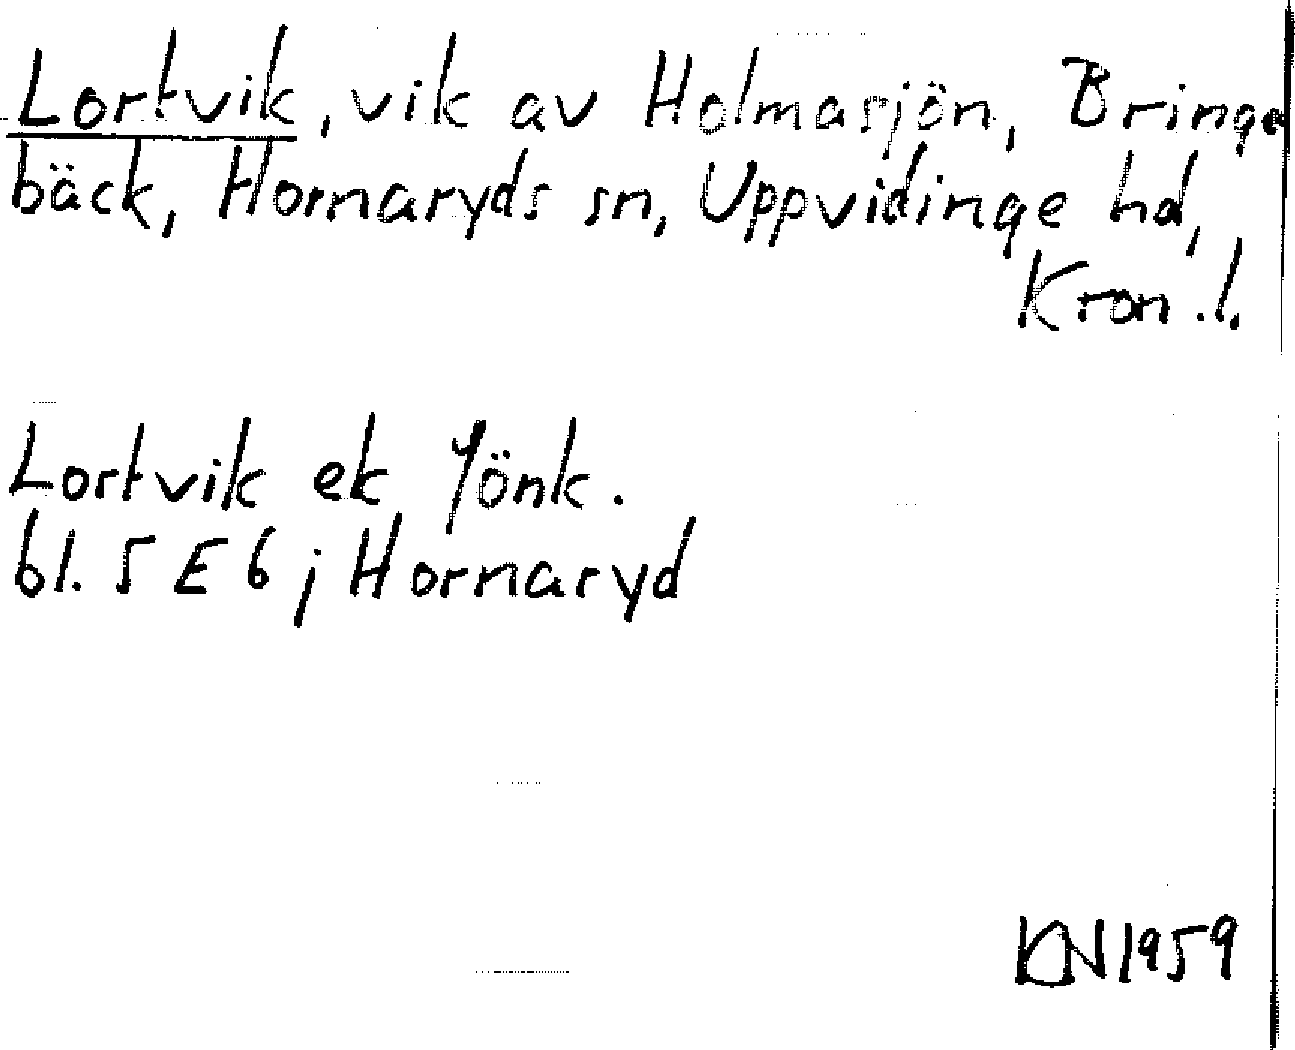 Lortvik, vik av Holmasjön, Bringe
bäck, Hornaryds sn, Uppvidinge hd,
Kron.l.
Lortvik ek Jönk.
bl. 5 E 6; Hornaryd
KN 1959